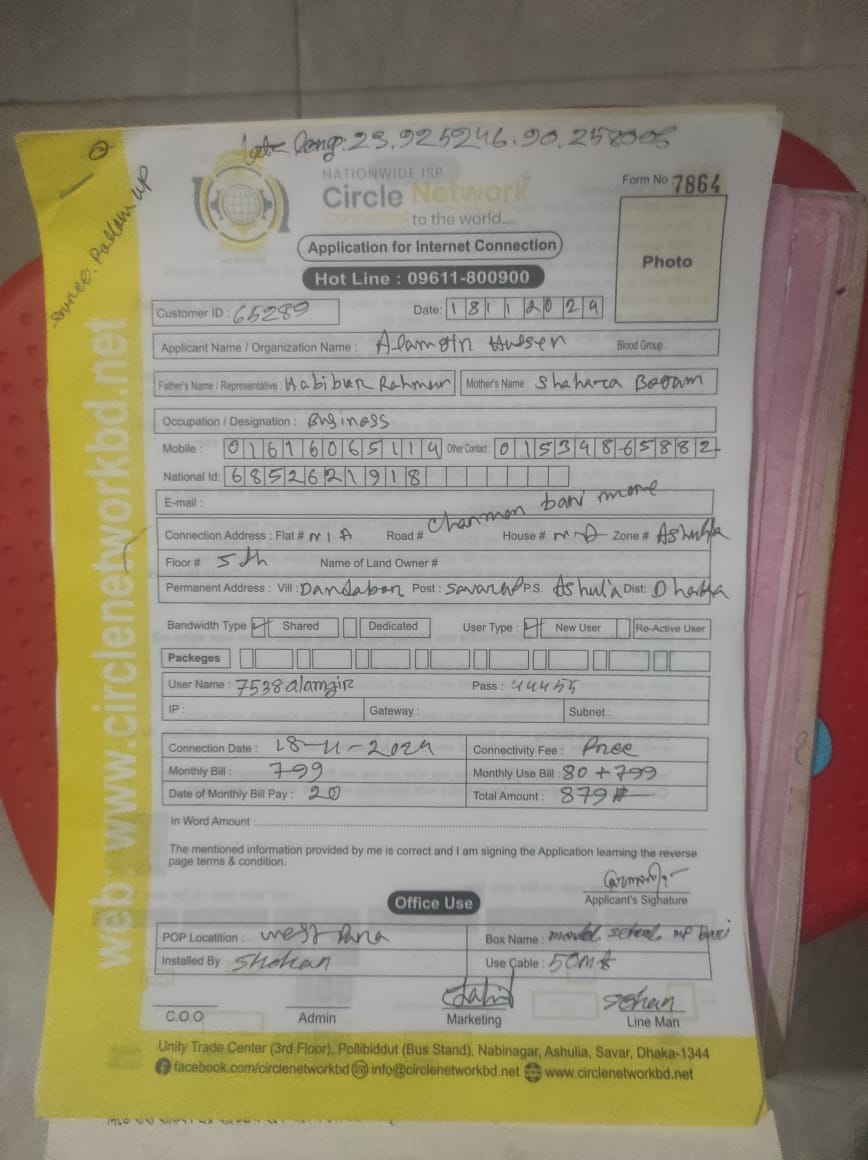 Late Long: 23.925246.90.258008
NATIONWIDE ISP
Circle Network
Connected to the world....
Form No 7864
Application for Internet Connection
Photo
Hot Line : 09611-800900
Customer ID : 65289
Date: 18112024
Applicant Name / Organization Name : Alamgir Hussen Blood Group :
Father's Name / Representative : Habibur Rahman Mother's Name :
Occupation / Designation : Business
Mobile : 01616065114 Other Contact : 01534865882
National Id: 6852621918
E-mail :
Connection Address : Flat # N/A Road # Charman bari more House # N/A Zone # Ashulia
Floor # 5th Name of Land Owner #
Permanent Address : Vill : Dandabor Post : Savar P.S. Ashulia Dist: Dhaka
Bandwidth Type Shared Dedicated User Type : New User Re-Active User
Packeges
User Name : 7538alamgir Pass : 44455
IP : Gateway : Subnet :
Connection Date : 18-11-2024 Connectivity Fee : Free
Monthly Bill : 799 Monthly Use Bill : 80+799
Date of Monthly Bill Pay : 20 Total Amount : 879
In Word Amount :
The mentioned information provided by me is correct and I am signing the Application learning the reverse
page terms & condition.
Applicant's Sighature
Office Use
POP Locatition : west Para Box Name : model school mp bari
Installed By Shohan Use Cable : 50m
C.O.O Admin Marketing Line Man
Unity Trade Center (3rd Floor), Pollibiddut (Bus Stand), Nabinagar, Ashulia, Savar, Dhaka-1344
facebook.com/circlenetworkbd info@circlenetworkbd.net www.circlenetworkbd.net
web: www.circlenetworkbd.net